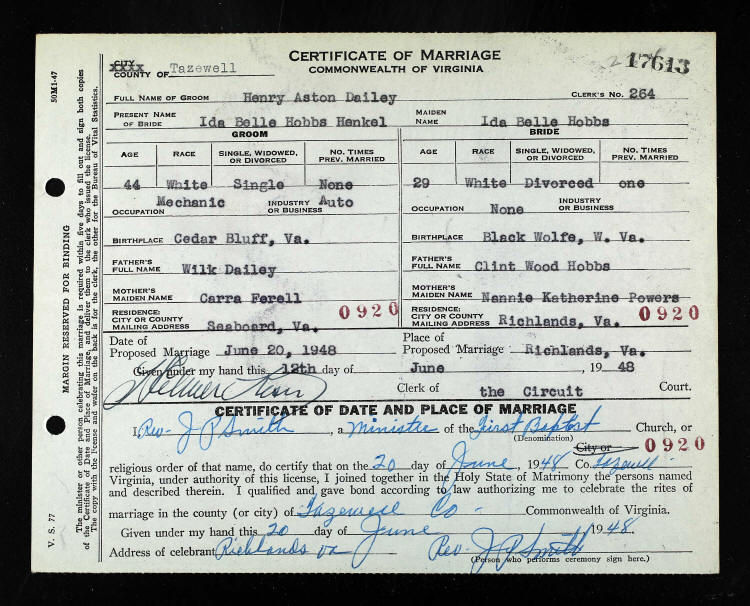 CERTIFICATE OF MARRIAGE
COMMONWEALTH OF VIRGINIA
17613
CITY
COUNTY OF Tazewell
FULL NAME OF GROOM Henry Aston Dailey CLERK'S NO. 264
PRESENT NAME OF BRIDE Ida Belle Hobbs Henkel MAIDEN NAME Ida Belle Hobbs
GROOM BRIDE
AGE RACE SINGLE, WIDOWED, OR DIVORCED NO. TIMES PREV. MARRIED AGE RACE SINGLE, WIDOWED, OR DIVORCED NO. TIMES PREV. MARRIED
44 White Single None 29 White Divorced one
OCCUPATION Mechanic INDUSTRY OR BUSINESS Auto OCCUPATION None INDUSTRY OR BUSINESS
BIRTHPLACE Cedar Bluff, Va. BIRTHPLACE Black Wolfe, W. Va.
FATHER'S FULL NAME Wilk Dailey FATHER'S FULL NAME Clint Wood Hobbs
MOTHER'S MAIDEN NAME Carra Ferell MOTHER'S MAIDEN NAME Nannie Katherine Powers
RESIDENCE: CITY OR COUNTY MAILING ADDRESS Seaboard, Va. 0920 RESIDENCE: CITY OR COUNTY MAILING ADDRESS Richlands, Va. 0920
Date of Proposed Marriage June 20, 1948 Place of Proposed Marriage Richlands, Va.
Given under my hand this 12th day of June, 1948
Clerk of the Circuit Court.
CERTIFICATE OF DATE AND PLACE OF MARRIAGE
I, Rev. J P Smith, a Minister of the First Baptist Church, or
(Denomination) City or 0920
religious order of that name, do certify that on the 20 day of June, 1948 Co. Tazewell
Virginia, under authority of this license, I joined together in the Holy State of Matrimony the persons named
and described therein. I qualified and gave bond according to law authorizing me to celebrate the rites of
marriage in the county (or city) of Tazewell Co - Commonwealth of Virginia.
Given under my hand this 20 day of June 1948.
Address of celebrant Richlands Va Rev. J P Smith
(Person who performs ceremony sign here.)
50M1-47
MARGIN RESERVED FOR BINDING
The minister or other person celebrating this marriage is required within five days to fill out and sign both copies
of the Certificate of Date and Place of Marriage, and deliver them to the clerk who issued the license.
The copy with the license and wafer on the back is for the clerk, the other for the Bureau of Vital Statistics.
V. S. 77